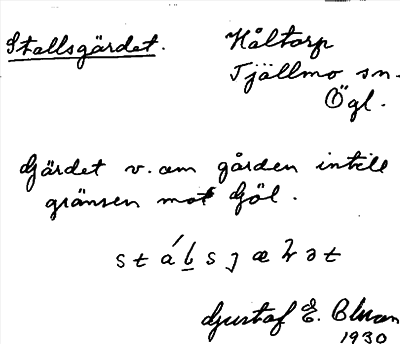 Stallsgärdet.
Håltorp
Tjällmo sn.
Ögl.
Gärdet v. om gården intill
gränsen mot Göl.
Gustaf E.
1930